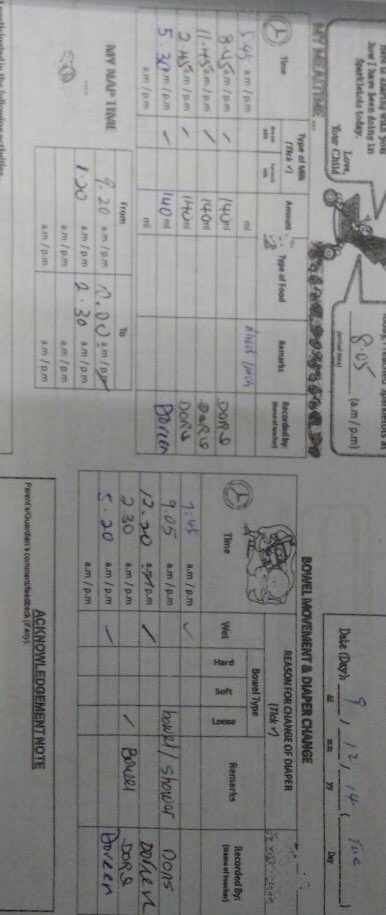 how I have been doing in
Sparkletots today.
Love,
Your Child
8.05 (a.m/p.m)
Date (Day): 9 / 12 / 14 ( Tue )
dd mm yy Day
MY MEALTIME
Time Type of Milk (Tick ✓) Amount Type of Food Remarks Recorded By: (Name of teacher)
5.45 a.m/p.m ml
8.45 a.m/p.m ✓ 140 ml DORS
11.45 a.m/p.m ✓ 140 ml DORS
2.45 a.m/p.m ✓ 140 ml DORS
5.30 a.m/p.m ✓ 140 ml Doreen
a.m/p.m ml
MY NAP TIME
From To
9.20 a.m/p.m a.m/p.m
1.20 a.m/p.m 2.30 a.m/p.m
a.m/p.m a.m/p.m
a.m/p.m a.m/p.m
BOWEL MOVEMENT & DIAPER CHANGE
REASON FOR CHANGE OF DIAPER
(Tick ✓)
Time Wet Bowel Type Remarks Recorded By: (Name of teacher)
Hard Soft Loose
7:45 a.m/p.m ✓
9.05 a.m/p.m bowel/shower DORS
12.20 a.m/p.m ✓ Doreen
2.30 a.m/p.m ✓ Bowel DORS
5.20 a.m/p.m ✓ Doreen
a.m/p.m
ACKNOWLEDGEMENT NOTE
Parent's/Guardian's comment/feedback (if any):
participated in the following activities